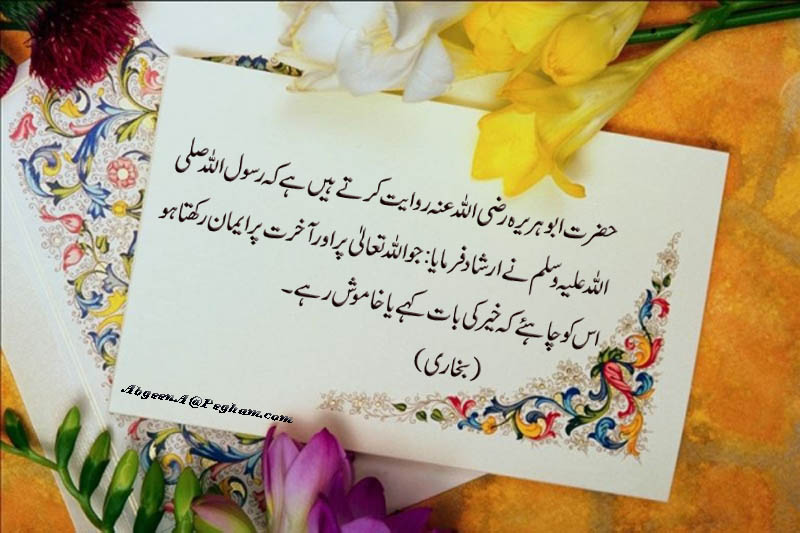 حضرت ابوہریرہ رضی اللہ عنہ روایت کرتے ہیں ہے کہ رسول اللہ صلی
اللہ علیہ وسلم نے ارشاد فرمایا: جو اللہ تعالیٰ پر اور آخرت پر ایمان رکھتا ہو
اس کو چاہئے کہ خیر کی بات کہے یا خاموش رہے۔
(بخاری)
AbgeenA@Pegham.com